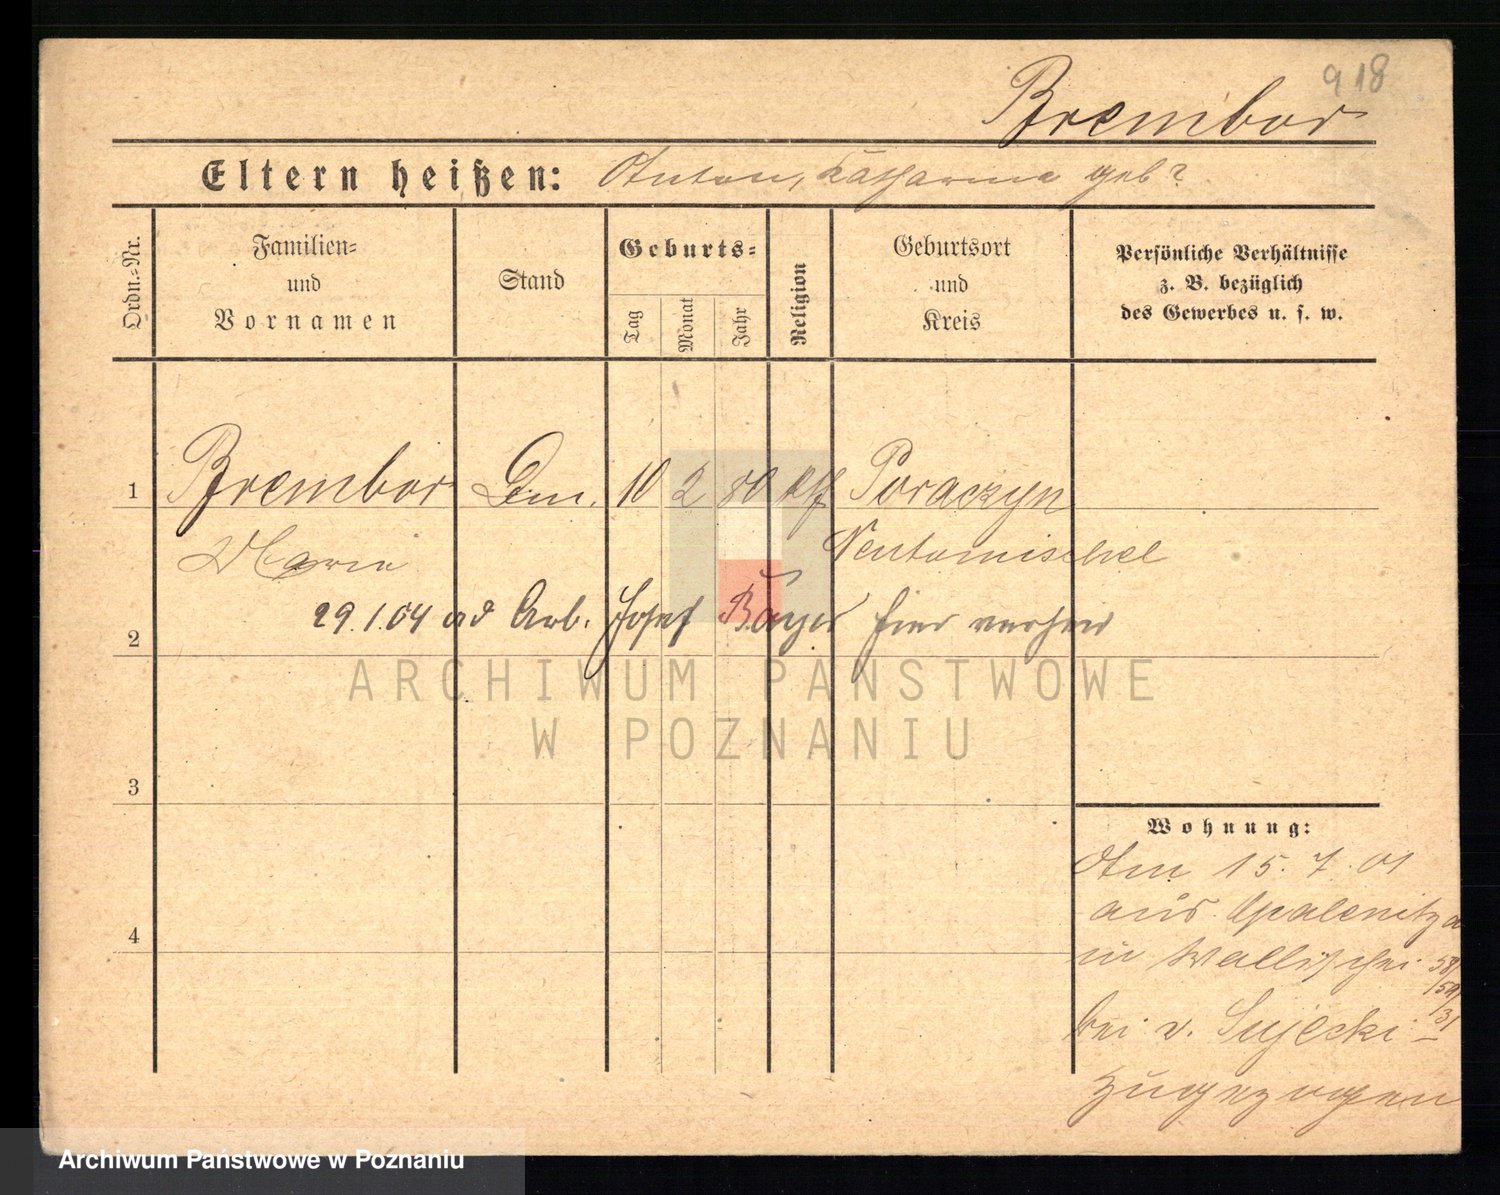 918
Brembor
Eltern heißen: Anton, Katharina geb?
Ordn.-Nr.
Familien- und Vornamen
Stand
Geburts-
Tag
Monat
Jahr
Religion
Geburtsort und Kreis
Persönliche Verhältnisse z. B. bezüglich des Gewerbes u. s. w.
1 Brembor 10 2 80 Poraczyn
Marie Neutomischel
29.1.04 Arb. Josef Bayer hier
2
3
4
Wohnung:
Am 15. 7. 01
aus Opalenitza
in Wallischei 58/59/31
bei v. Sujecki
zugezogen
ARCHIWUM PAŃSTWOWE
W POZNANIU
Archiwum Państwowe w Poznaniu